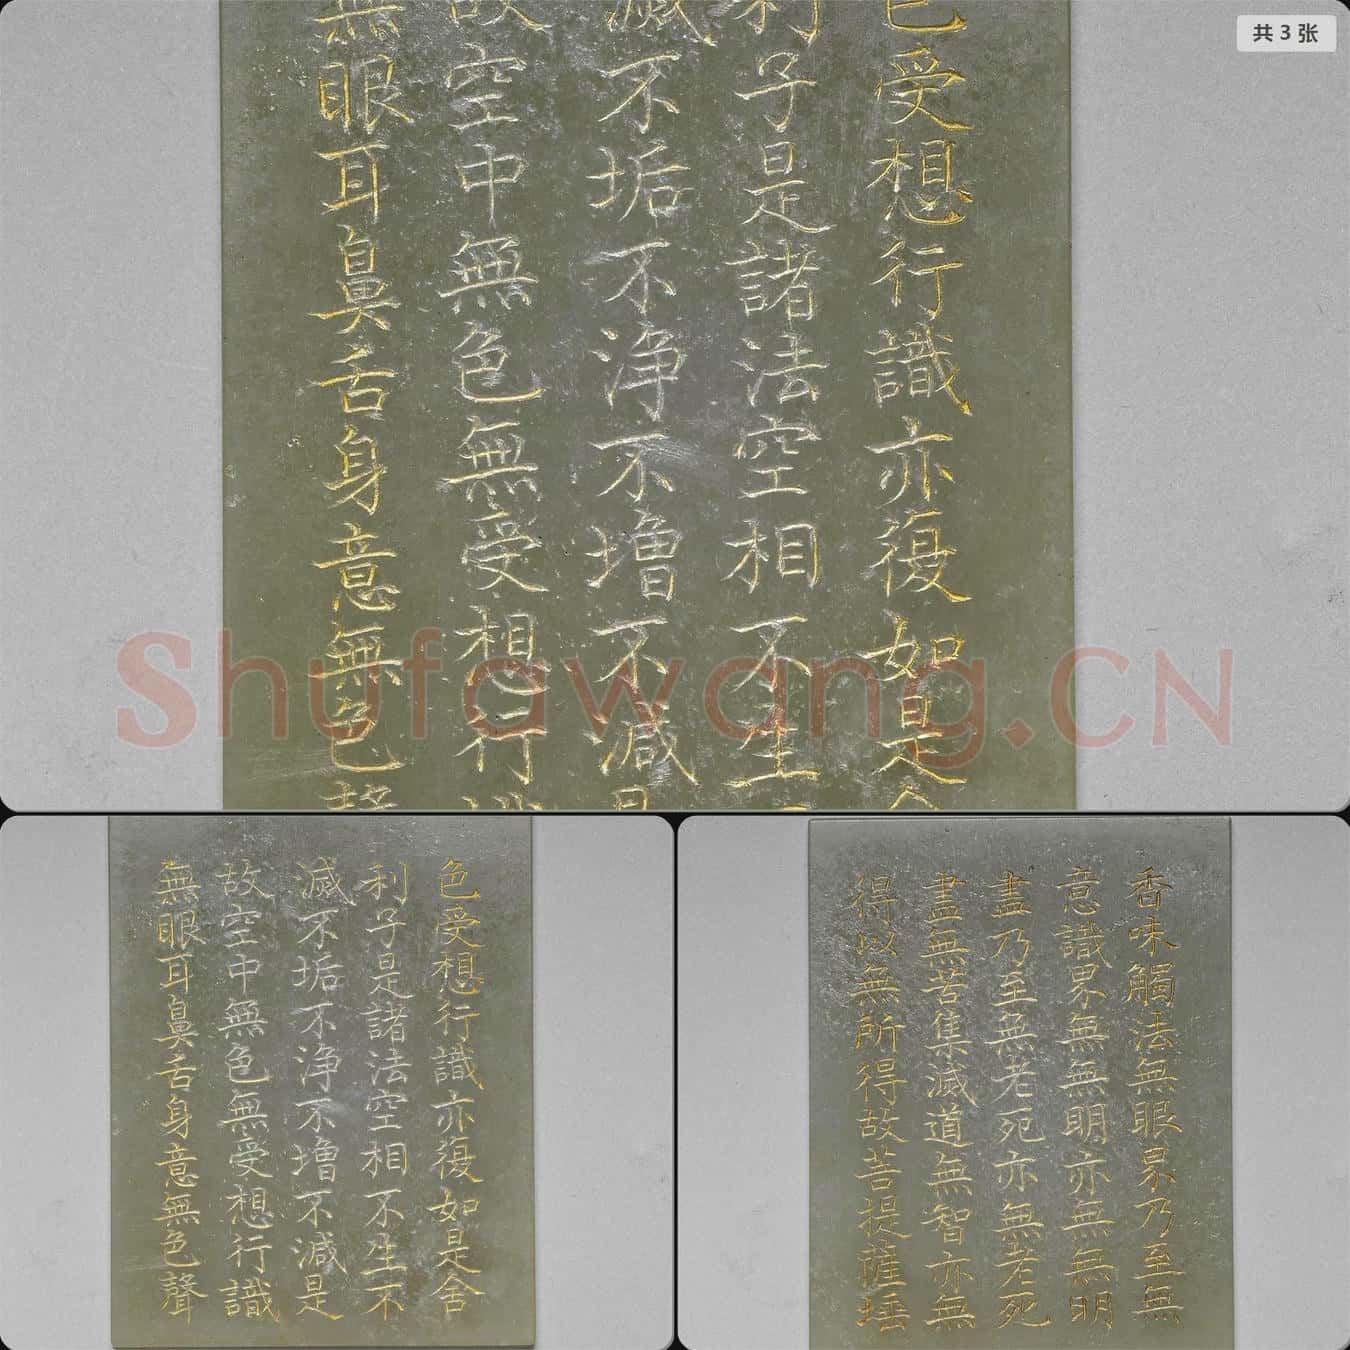 共 3 张
色受想行識亦復如是舍
利子是諸法空相不生不
滅不垢不浄不增不減是
故空中無色無受想行
無眼耳鼻舌身意無色聲
Shufawang.CN
色受想行識亦復如是舍
利子是諸法空相不生不
滅不垢不浄不增不減是
故空中無色無受想行識
無眼耳鼻舌身意無色聲
香味觸法無眼界乃至無
意識界無無明亦無無明
盡乃至無老死亦無老死
盡無苦集滅道無智亦無
得以無所得故菩提薩埵